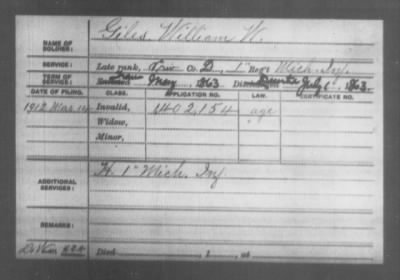 Giles William W.
NAME OF SOLDIER:
SERVICE: Late rank, Co. D, 1" Regt Mich. Inf.
TERM OF SERVICE: May, 1863 July 1, 1863.
DATE OF FILING. CLASS. APPLICATION NO. LAW. CERTIFICATE NO.
1912 Mar Invalid, 1402,154 age
Widow,
Minor,
ADDITIONAL SERVICES: H. 1" Mich. Inf
REMARKS:
624 Died , 1 , at